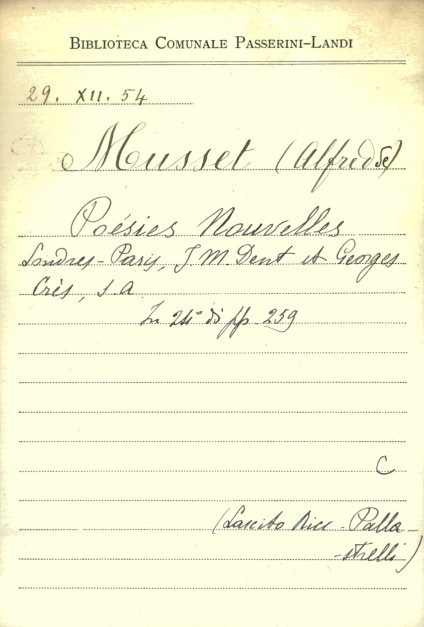 BIBLIOTECA COMUNALE PASSERINI-LANDI
29. XII. 54
Musset (Alfred De)
Poésies Nouvelles
Londres-Paris, J. M. Dent et Georges
Crès, s. a
In 24° di pp. 259
C
(Lascito Ricc - Palla-
-strelli)